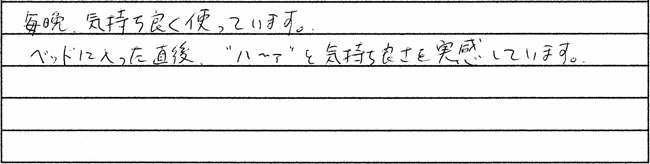 毎晩、気持ち良く使っています。
ベッドに入った直後、"ハ〜ァ"と気持ち良さを実感しています。